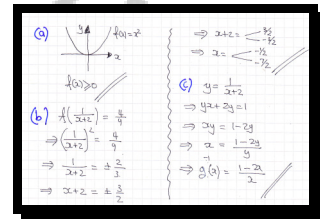 (a) y f(x)=x²
x
f(x)≥0
(b) f(1/(x+2)) = 4/9
⇒ (1/(x+2))² = 4/9
⇒ 1/(x+2) = ± 2/3
⇒ x+2 = ± 3/2
⇒ x+2 = 3/2
-3/2
⇒ x = -1/2
-7/2
(c) y = 1/(x+2)
⇒ yx+2y=1
⇒ xy = 1-2y
⇒ x = (1-2y)/y
⇒ g⁻¹(x) = (1-2x)/x